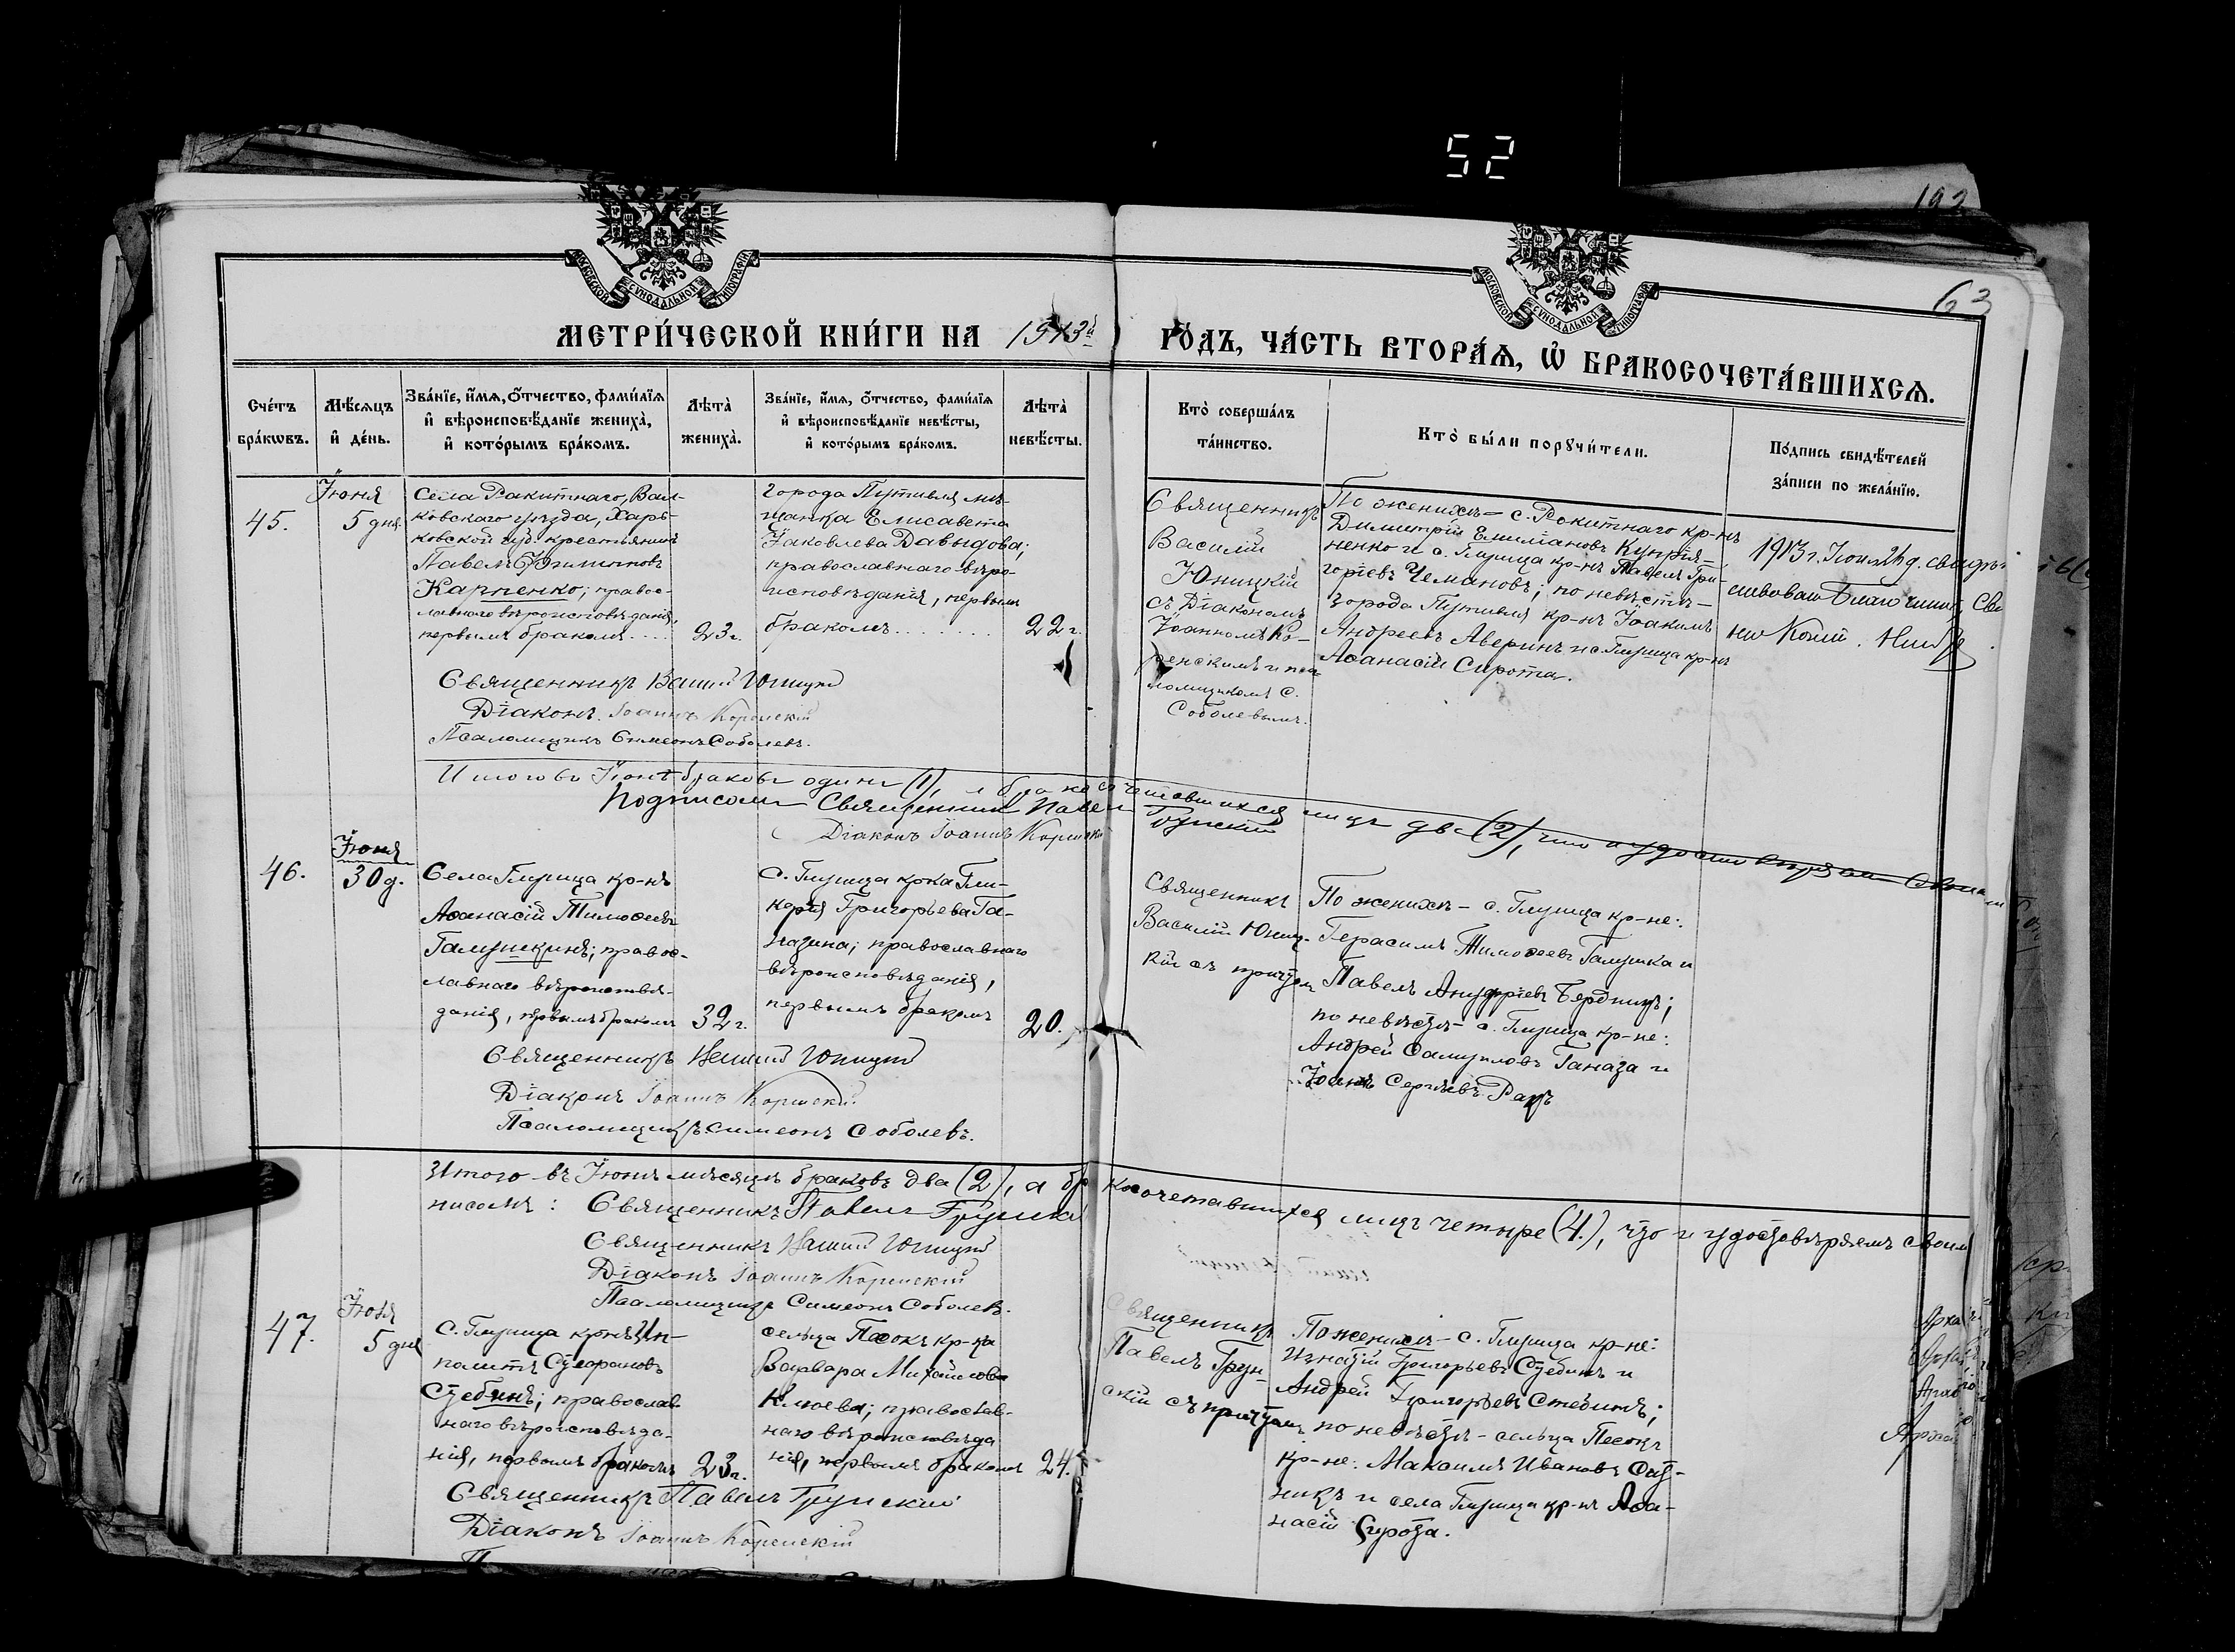 52
192
63
МОСКОВСКОЙ СѴНОДАЛЬНОЙ ТИПОГРАФІИ
МОСКОВСКОЙ СѴНОДАЛЬНОЙ ТИПОГРАФІИ
МЕТРИ́ЧЕСКОЙ КНИ́ГИ НА 1913й
ГО́ДЪ, ЧА́СТЬ ВТОРА́Ѧ, Ѡ҆ БРАКОСОЧЕТА́ВШИХСѦ.
Сче́тъ бра́кѡвъ.
Мѣ́сѧцъ и҆ де́нь.
Зва́нїе, и҆́мѧ, ѻ҆́тчество, фами́лїѧ
и҆ вѣроисповѣ́данїе жениха̀,
и҆ кото́рымъ бра́комъ.
Лѣта̀ жениха̀.
Зва́нїе, и҆́мѧ, ѻ҆́тчество, фами́лїѧ
и҆ вѣроисповѣ́данїе невѣ́сты,
и҆ кото́рымъ бра́комъ.
Лѣта̀ невѣ́сты.
Кто̀ соверша́лъ
та́инство.
Кто̀ бы́ли порꙋчи́тели.
По́дпись свидѣ́телей
за́писи по жела́нїю.
45.
Іюня
5 дня.
Села Ракитнаго, Вал-
ковскаго уѣзда, Харь-
ковской губ. крестьянинъ
Павелъ
Карпенко; правос-
лавнаго вѣроисповѣданія,
первымъ бракомъ....
23г.
Города Путивля мѣ-
щанка Елисавета
Іаковлева Давыдова;
православнаго вѣро-
исповѣданія, первымъ
бракомъ.......
22г.
Священникъ
Василій
Юницкій
съ Діакономъ
Іоанномъ Ко-
ренскимъ и пса-
ломщикомъ С.
Соболевымъ.
По женихѣ - с. Рокитнаго кр-нъ
Димитрій Емиліановъ Купрія-
ненко и с. Глушца кр-нъ Павелъ Гри-
горіевъ Чемановъ; по невѣстѣ -
города Путивля кр-нъ Іоакимъ
Андреевъ Аверинъ и с. Глушца кр-нъ
Аѳанасій Сирота.
1913 г.
Священникъ Василій Юницкій
Діаконъ Іоаннъ Коренскій
Псаломщикъ Симеонъ Соболевъ.
Итого въ Іюнѣ браковъ одинъ (1), а бракосочетавшихся лицъ два (2), что и удостовѣряемъ своимъ
подписомъ Священникъ Павелъ Грунскій
Діаконъ Іоаннъ Коренскій
46.
Іюня
30 д.
Села Глушца кр-нъ
Аѳанасій Тимоѳеевъ
Галушкинъ; правос-
лавнаго вѣроисповѣ-
данія, первымъ бракомъ
32г.
С. Глушца кр-ка Гли-
керія Григорьева Га-
назина; православнаго
вѣроисповѣданія,
первымъ бракомъ
20.
Священникъ
Василій Юниц-
кій съ причтомъ
По женихѣ - с. Глушца кр-не:
Герасимъ Тимоѳеевъ Галушка и
Павелъ Ануфріевъ Бердникъ;
по невѣстѣ - с. Глушца кр-не:
Андрей Самуиловъ Ганаза и
Іоаннъ Сергѣевъ Ракъ
Священникъ Василій Юницкій
Діаконъ Іоаннъ Коренскій
Псаломщикъ Симеонъ Соболевъ.
Итого въ Іюнѣ мѣсяцѣ браковъ два (2), а бракосочетавшихся лицъ четыре (4), что и удостовѣряемъ своимъ
писомъ: Священникъ Павелъ Грунскій
Священникъ Василій Юницкій
Діаконъ Іоаннъ Коренскій
Псаломщикъ Симеонъ Соболевъ.
47.
5 дня
С. Глушца кр-нъ Ип-
политъ Стефановъ
Стебинъ; православ-
наго вѣроисповѣда-
нія, первымъ бракомъ
23г.
сельца Песокъ кр-ка
Варвара Михайлова
Клюева; православ-
наго вѣроисповѣда
нія, первымъ бракомъ
24.
Священникъ
Павелъ Грун-
скій съ причтомъ
По женихѣ - с. Глушца кр-не:
Игнатій Григорьевъ Стебинъ и
Андрей Григорьевъ Стебинъ;
по невѣстѣ - сельца Песокъ
кр-не: Максимъ Ивановъ
и села Глушца кр-нъ Аѳа-
насій Сирота.
Священникъ Павелъ Грунскій
Діаконъ Іоаннъ Коренскій